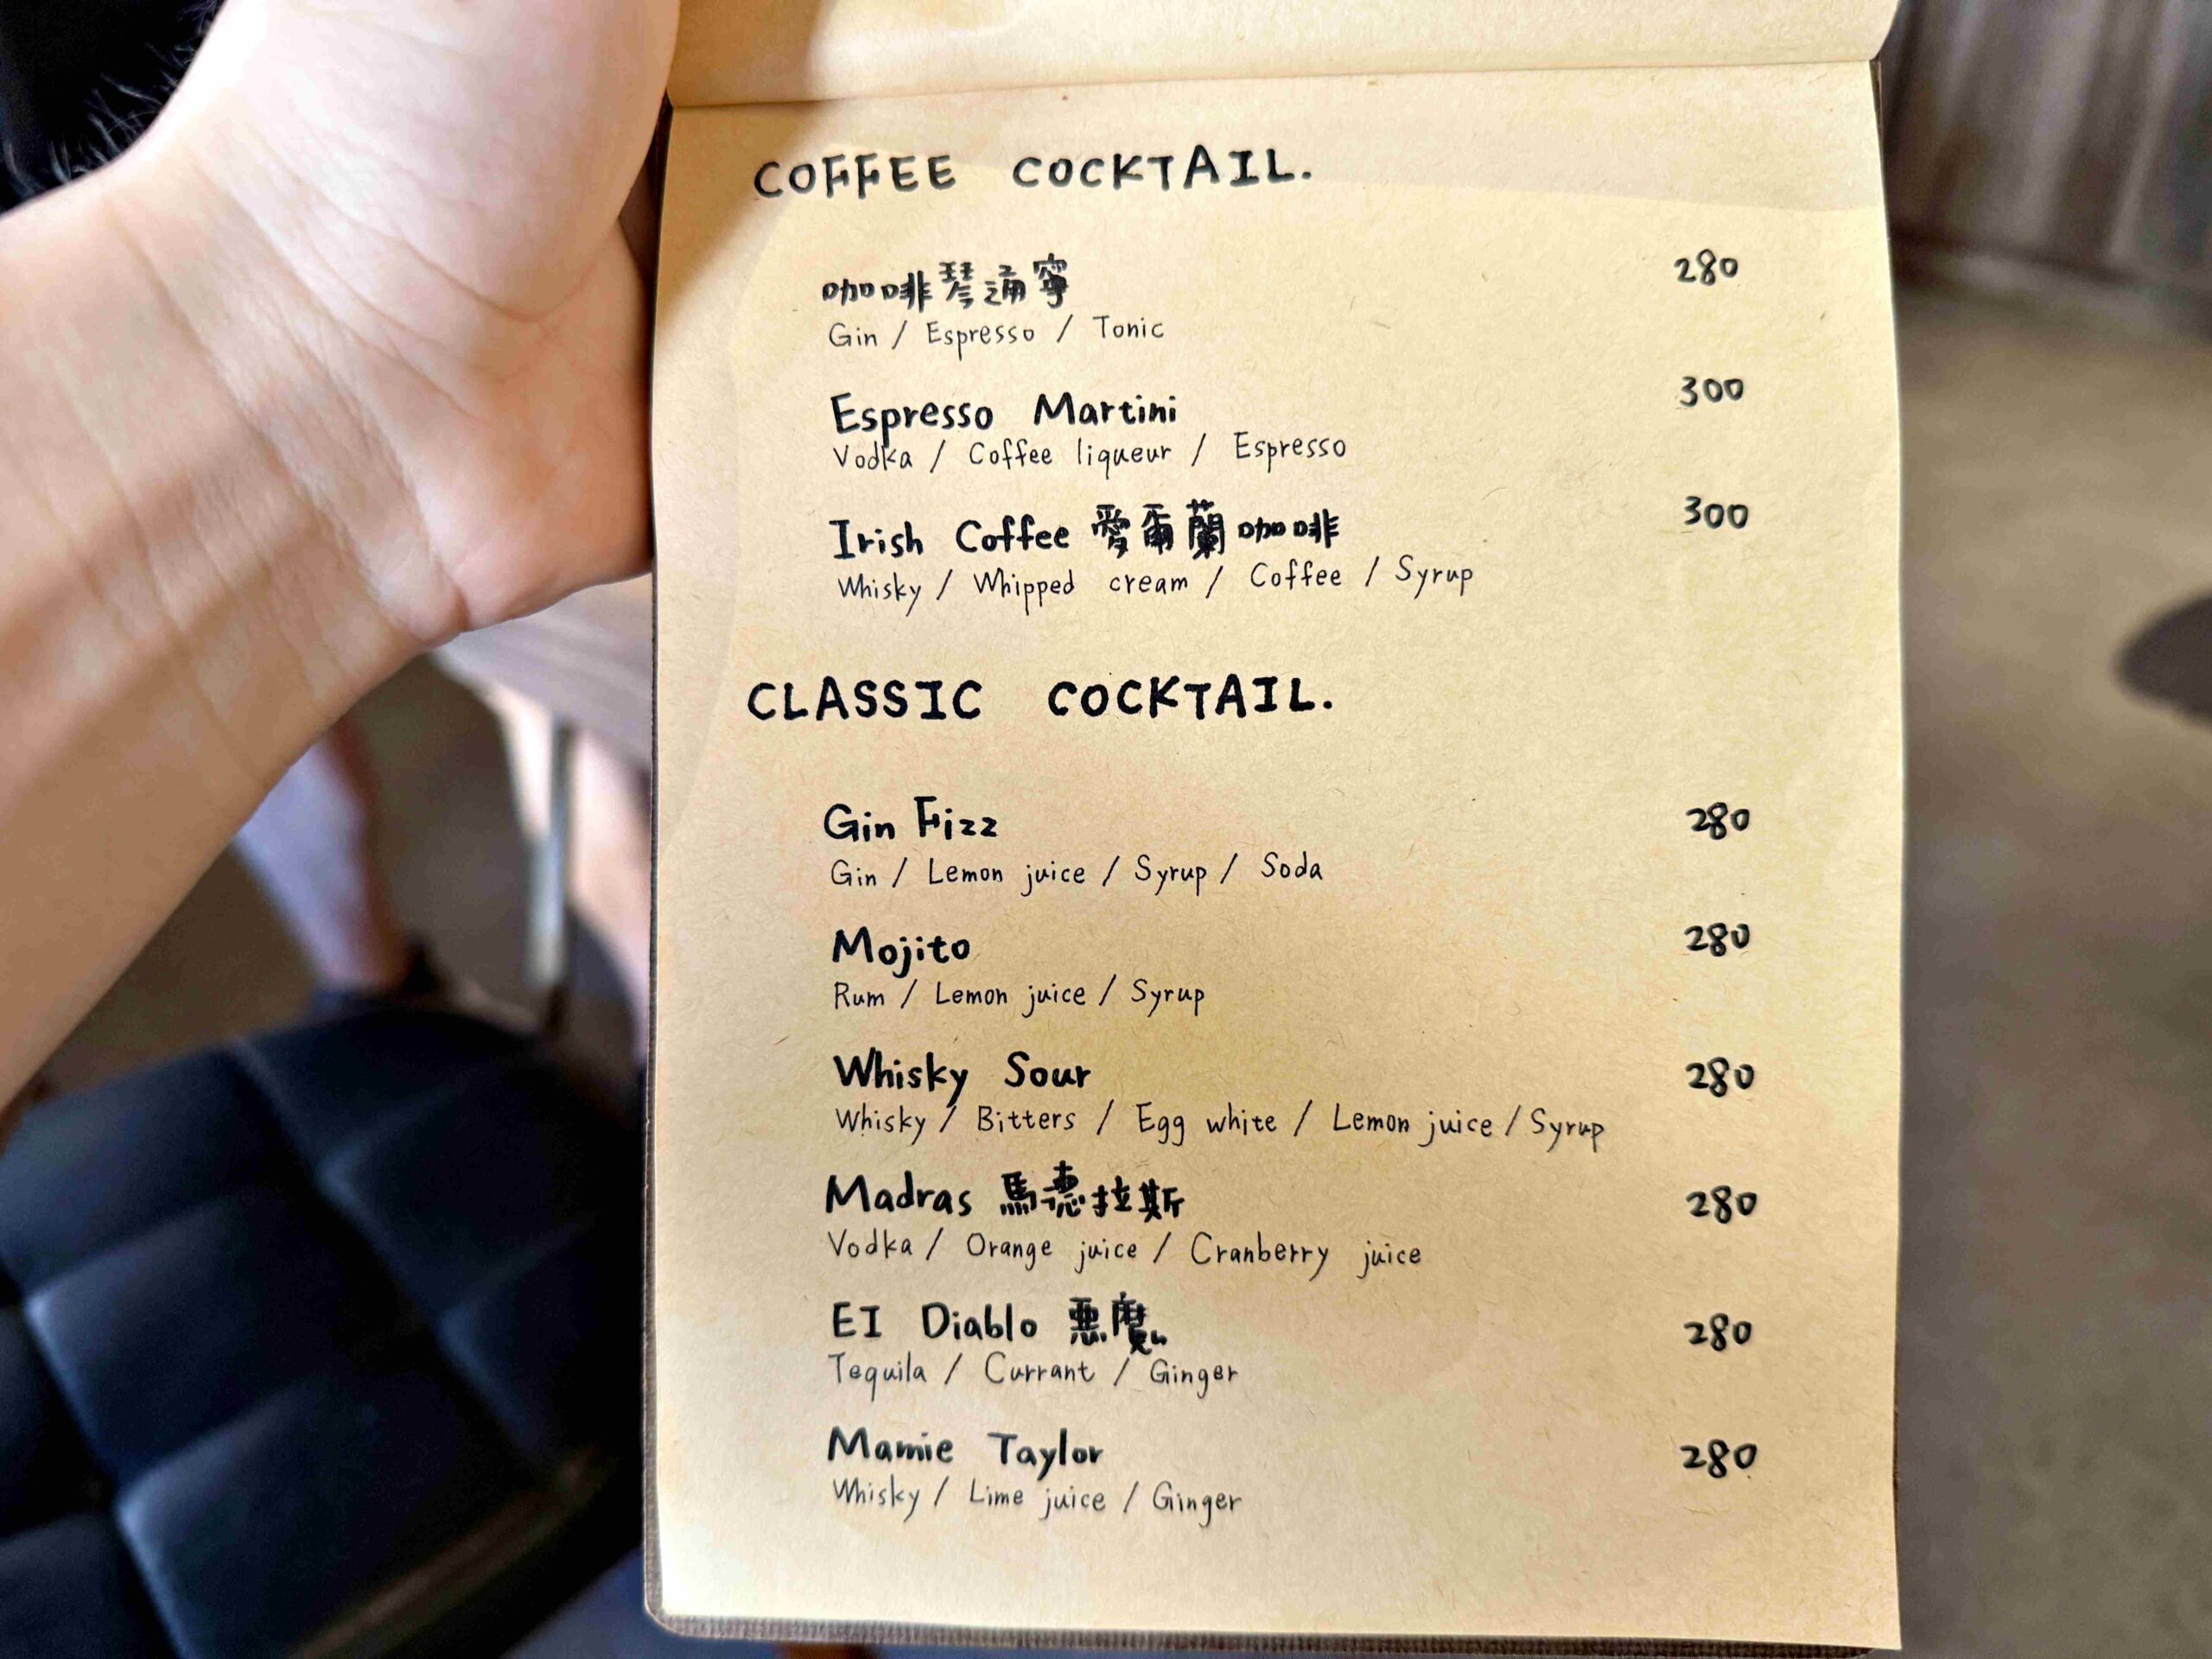 COFFEE COCKTAIL.
咖啡琴通寧 280
Gin / Espresso / Tonic
Espresso Martini 300
Vodka / Coffee liqueur / Espresso
Irish Coffee 愛爾蘭咖啡 300
Whisky / Whipped cream / Coffee / Syrup
CLASSIC COCKTAIL.
Gin Fizz 280
Gin / Lemon juice / Syrup / Soda
Mojito 280
Rum / Lemon juice / Syrup
Whisky Sour 280
Whisky / Bitters / Egg white / Lemon juice / Syrup
Madras 馬德拉斯 280
Vodka / Orange juice / Cranberry juice
EI Diablo 惡魔 280
Tequila / Currant / Ginger
Mamie Taylor 280
Whisky / Lime juice / Ginger